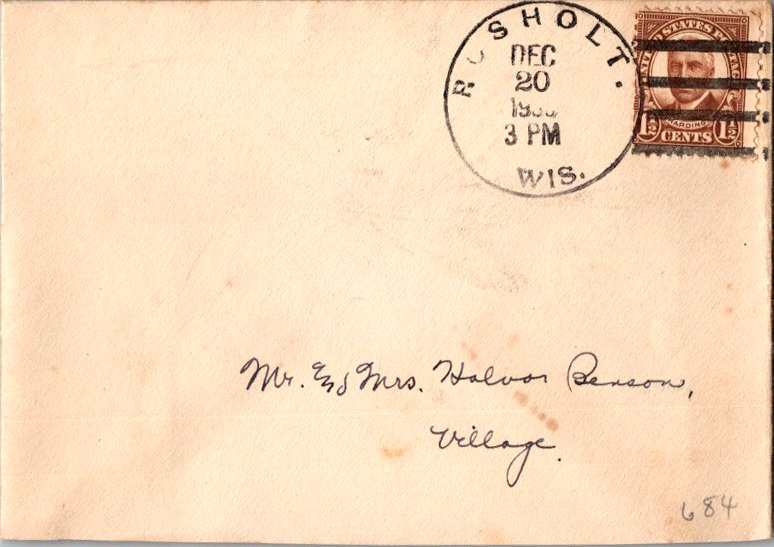 ROSHOLT.
DEC
20
3 PM
WIS.
UNITED STATES POSTAGE
HARDING
1½ CENTS 1½
Mr. and Mrs. Halvor Benson,
Village.
684